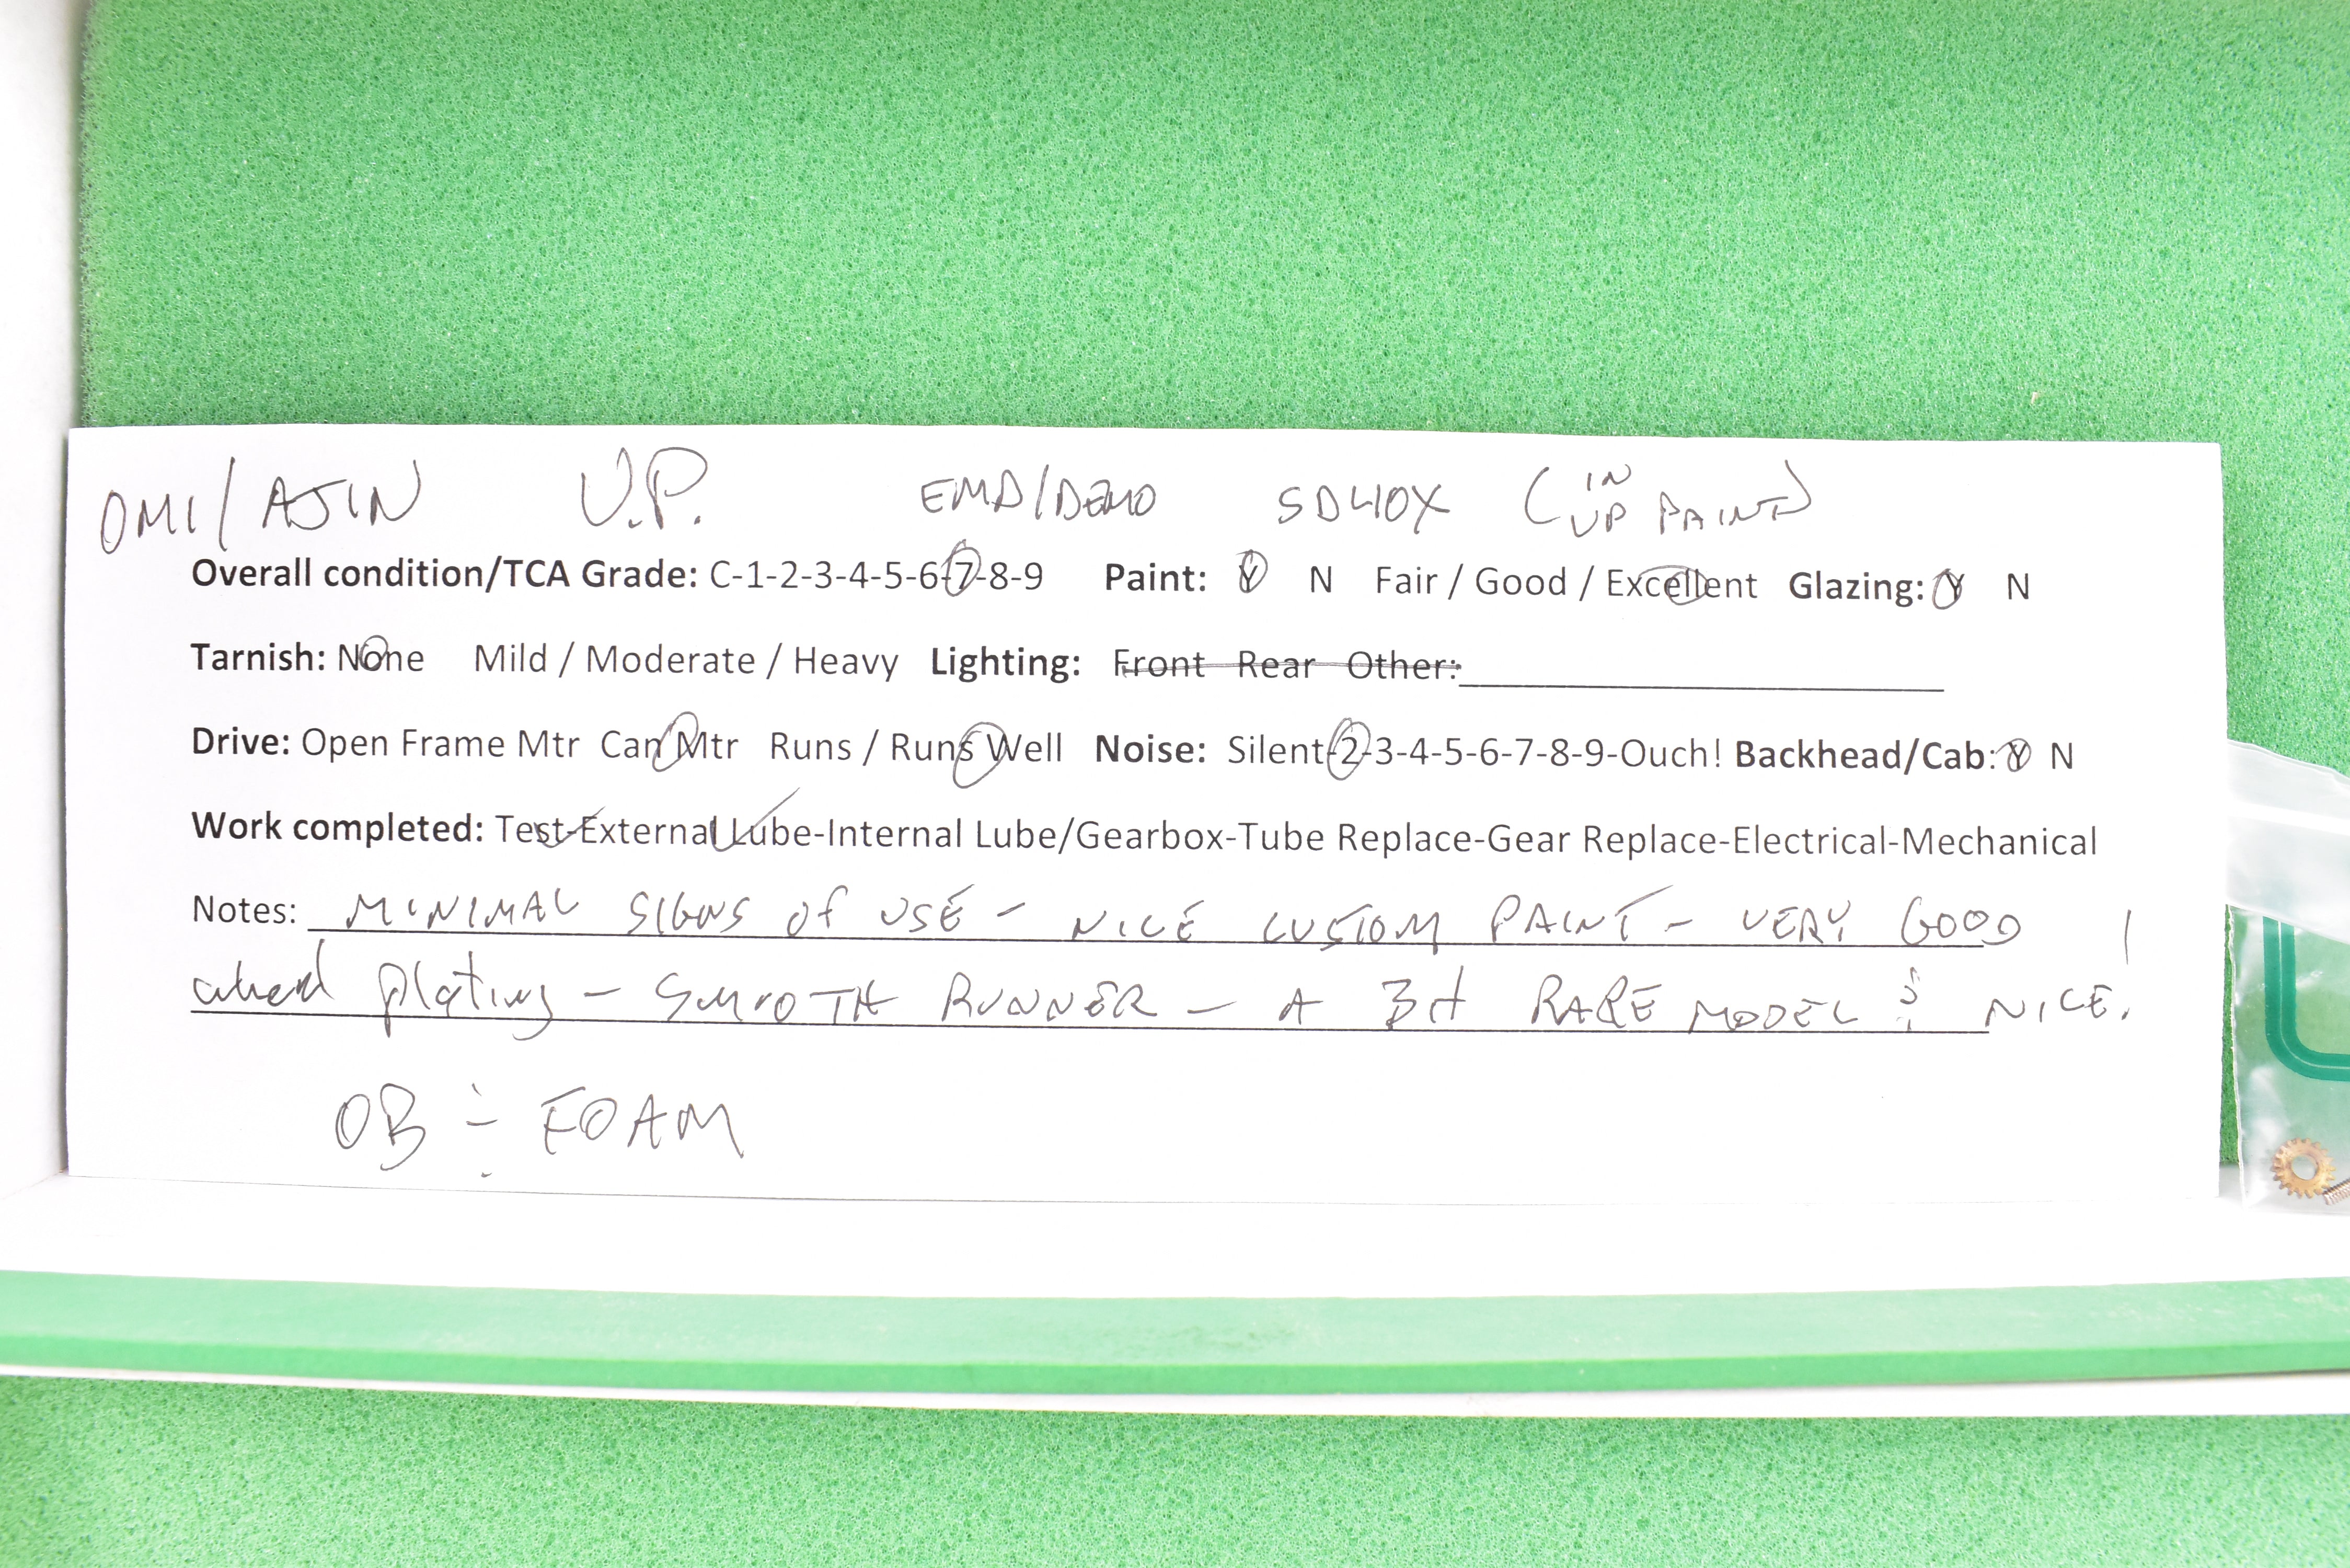 OMI/AJIN U.P. EMD/DEMO SD40X (IN UP PAINT)
Overall condition/TCA Grade: C-1-2-3-4-5-6-7-8-9 Paint: Y N Fair / Good / Excellent Glazing: Y N
Tarnish: None Mild / Moderate / Heavy Lighting: Front Rear Other:
Drive: Open Frame Mtr Can Mtr Runs / Runs Well Noise: Silent-2-3-4-5-6-7-8-9-Ouch! Backhead/Cab: Y N
Work completed: Test-External Lube-Internal Lube/Gearbox-Tube Replace-Gear Replace-Electrical-Mechanical
Notes: MINIMAL SIGNS OF USE - NICE CUSTOM PAINT - VERY GOOD
wheel plating - SMOOTH RUNNER - A BIT RARE MODEL & NICE!
OB & FOAM